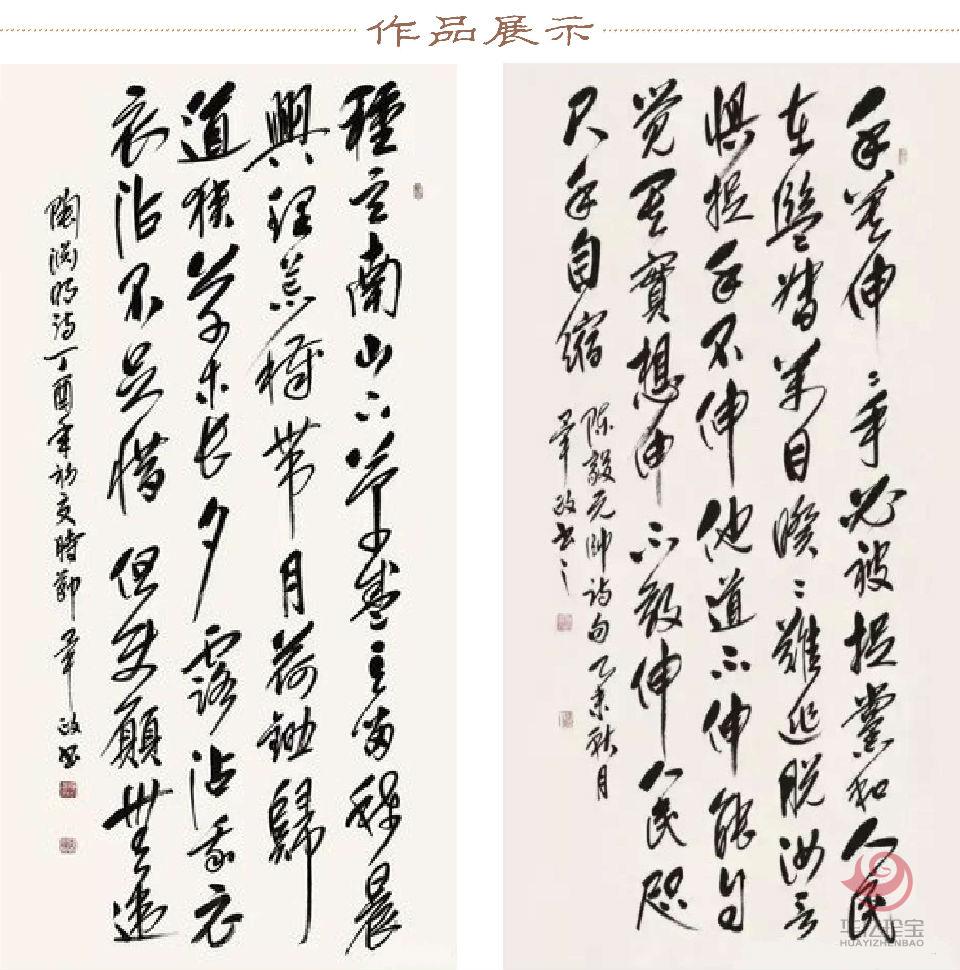 作品展示
種豆南山下草盛豆苗稀晨
興理荒穢帶月荷鋤歸
道狹草木長夕露沾我衣
衣沾不足惜但使願無違
陶淵明詩丁酉年初夏時節 政書
手莫伸〻手必被捉黨和人民
在監督萬目睽〻難逃脫汝言
懼捉手不伸他道不伸能自
覺其實想伸不敢伸人民咫
尺手自縮
陳毅元帥詩句乙未秋月
政書之
HUAYIZHENBAO